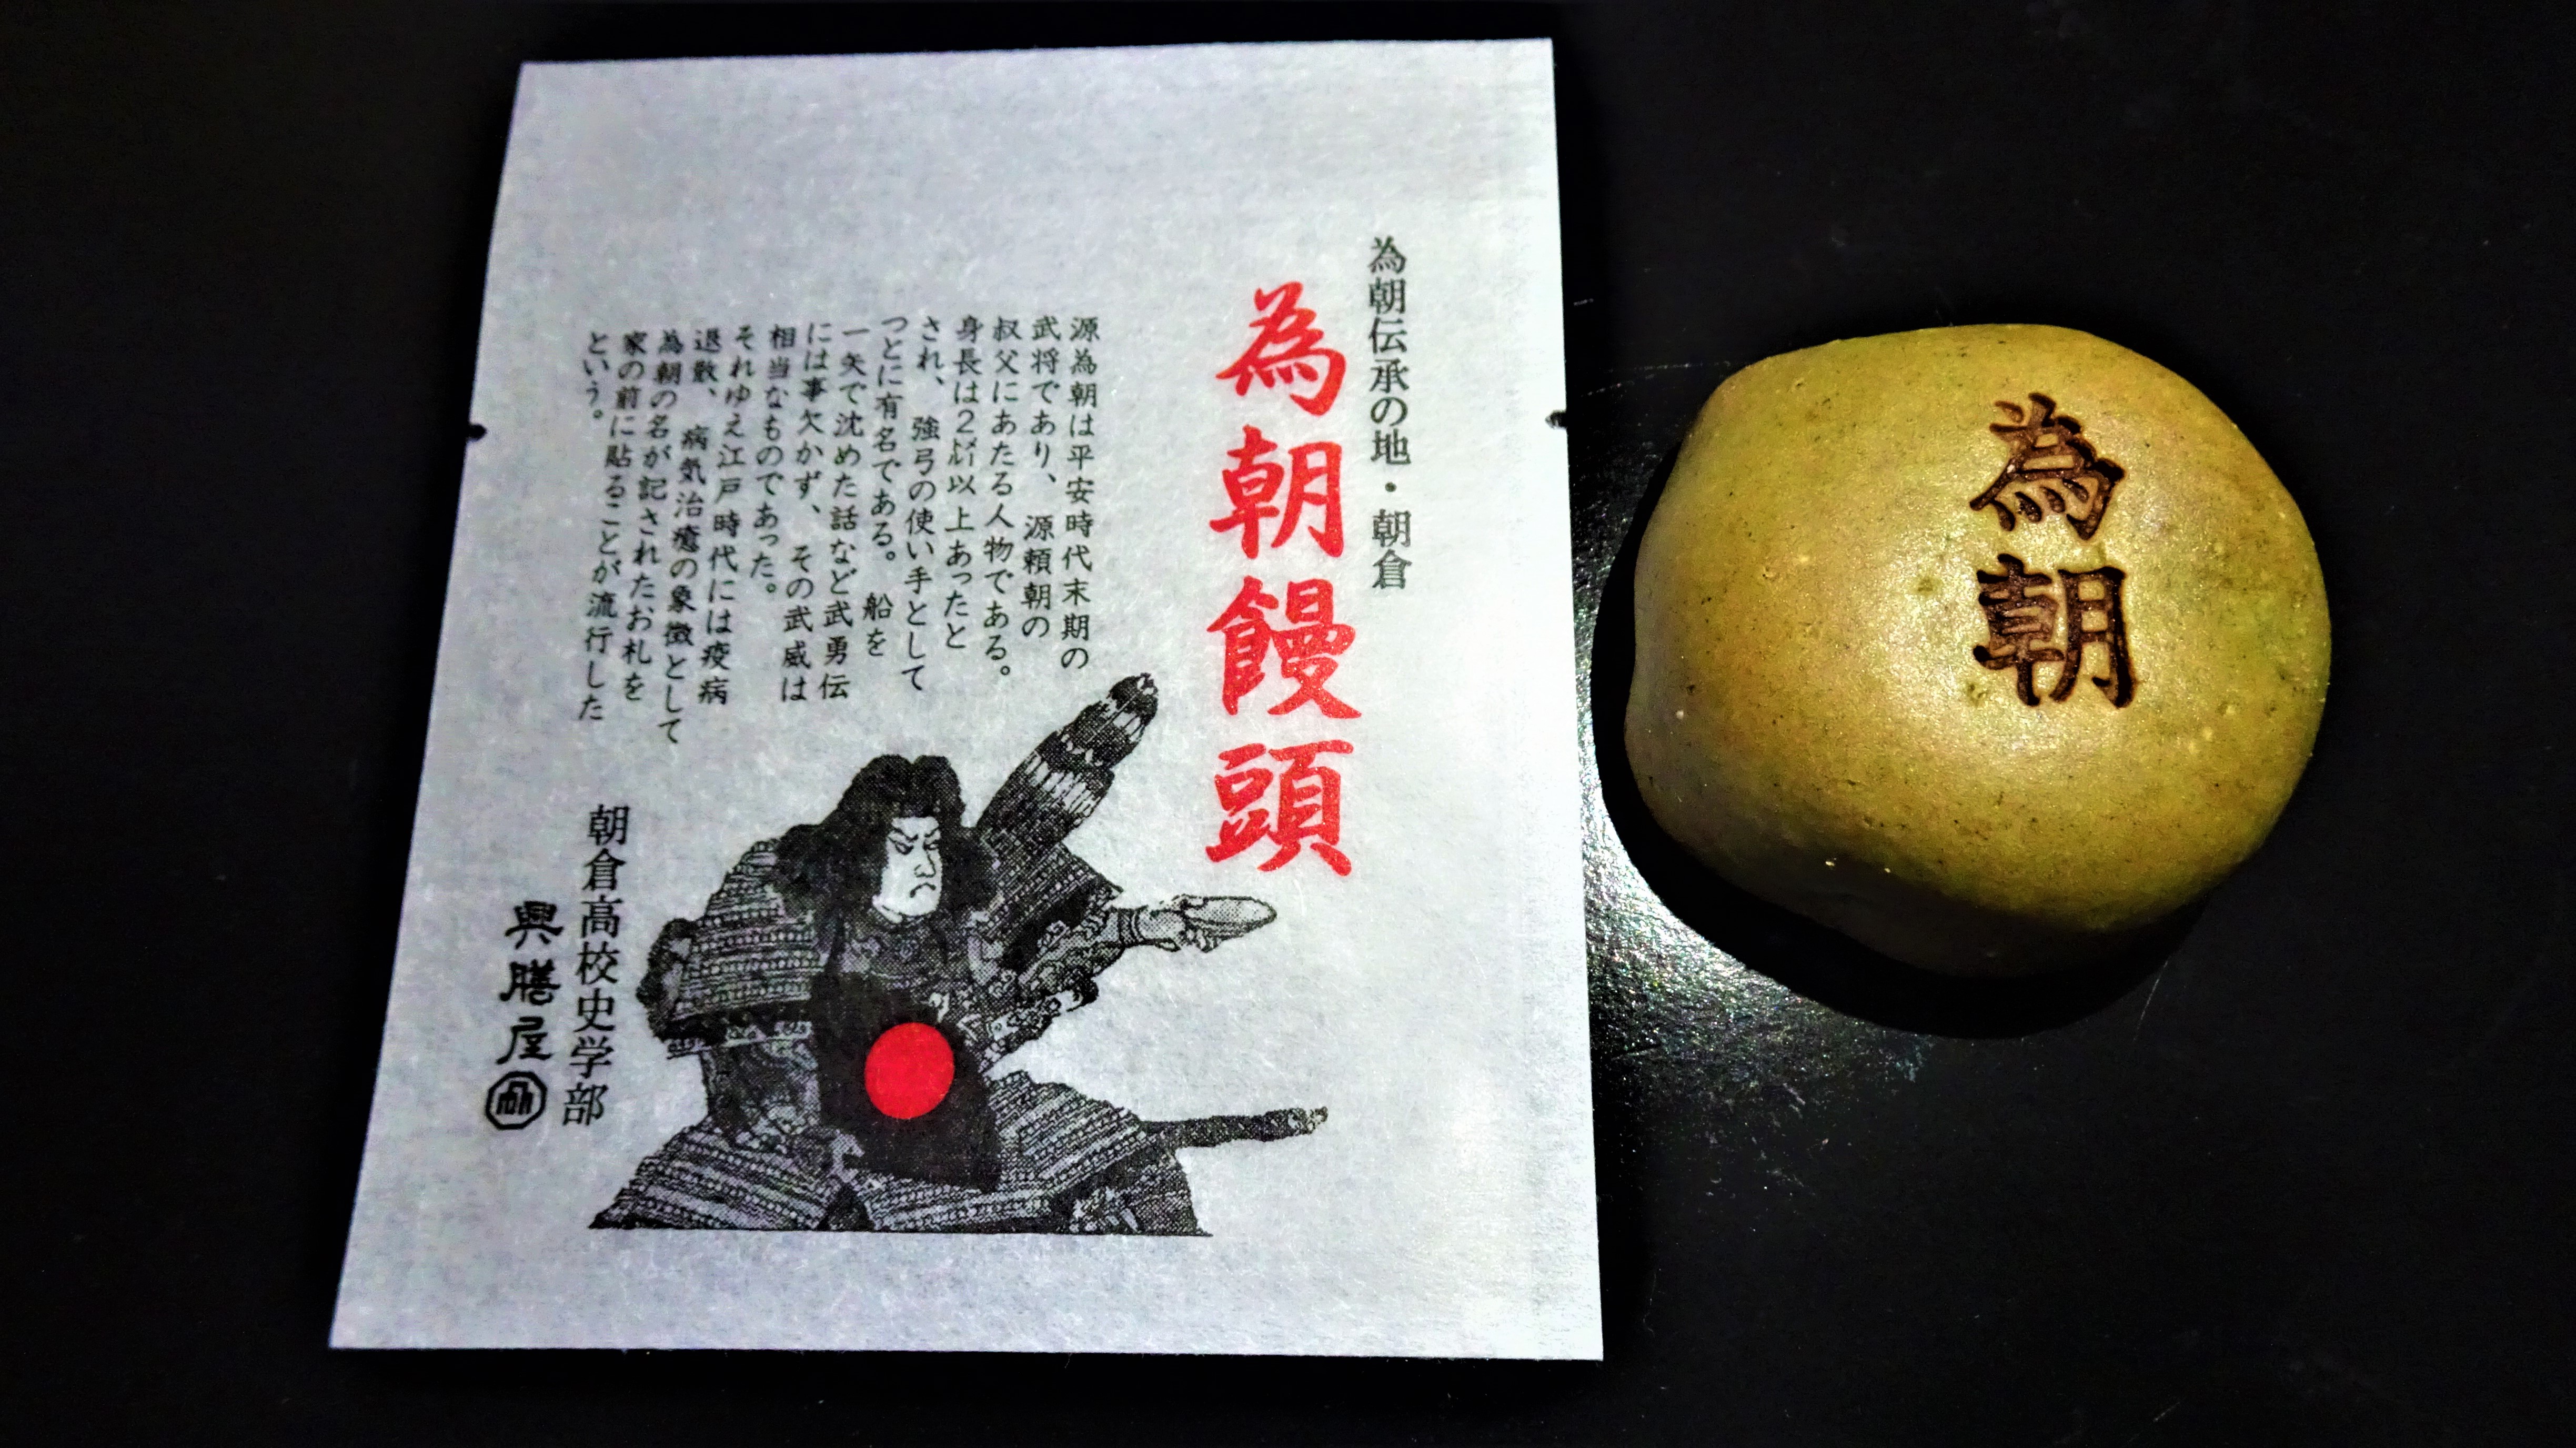 為朝伝承の地・朝倉
為朝饅頭
源為朝は平安時代末期の
武将であり、源頼朝の
叔父にあたる人物である。
身長は２㍍以上あったと
され、強弓の使い手として
つとに有名である。船を
一矢で沈めた話など武勇伝
には事欠かず、その武威は
相当なものであった。
それゆえ江戸時代には疫病
退散、病気治癒の象徴として
為朝の名が記されたお札を
家の前に貼ることが流行した
という。
朝倉高校史学部
興膳屋
為朝